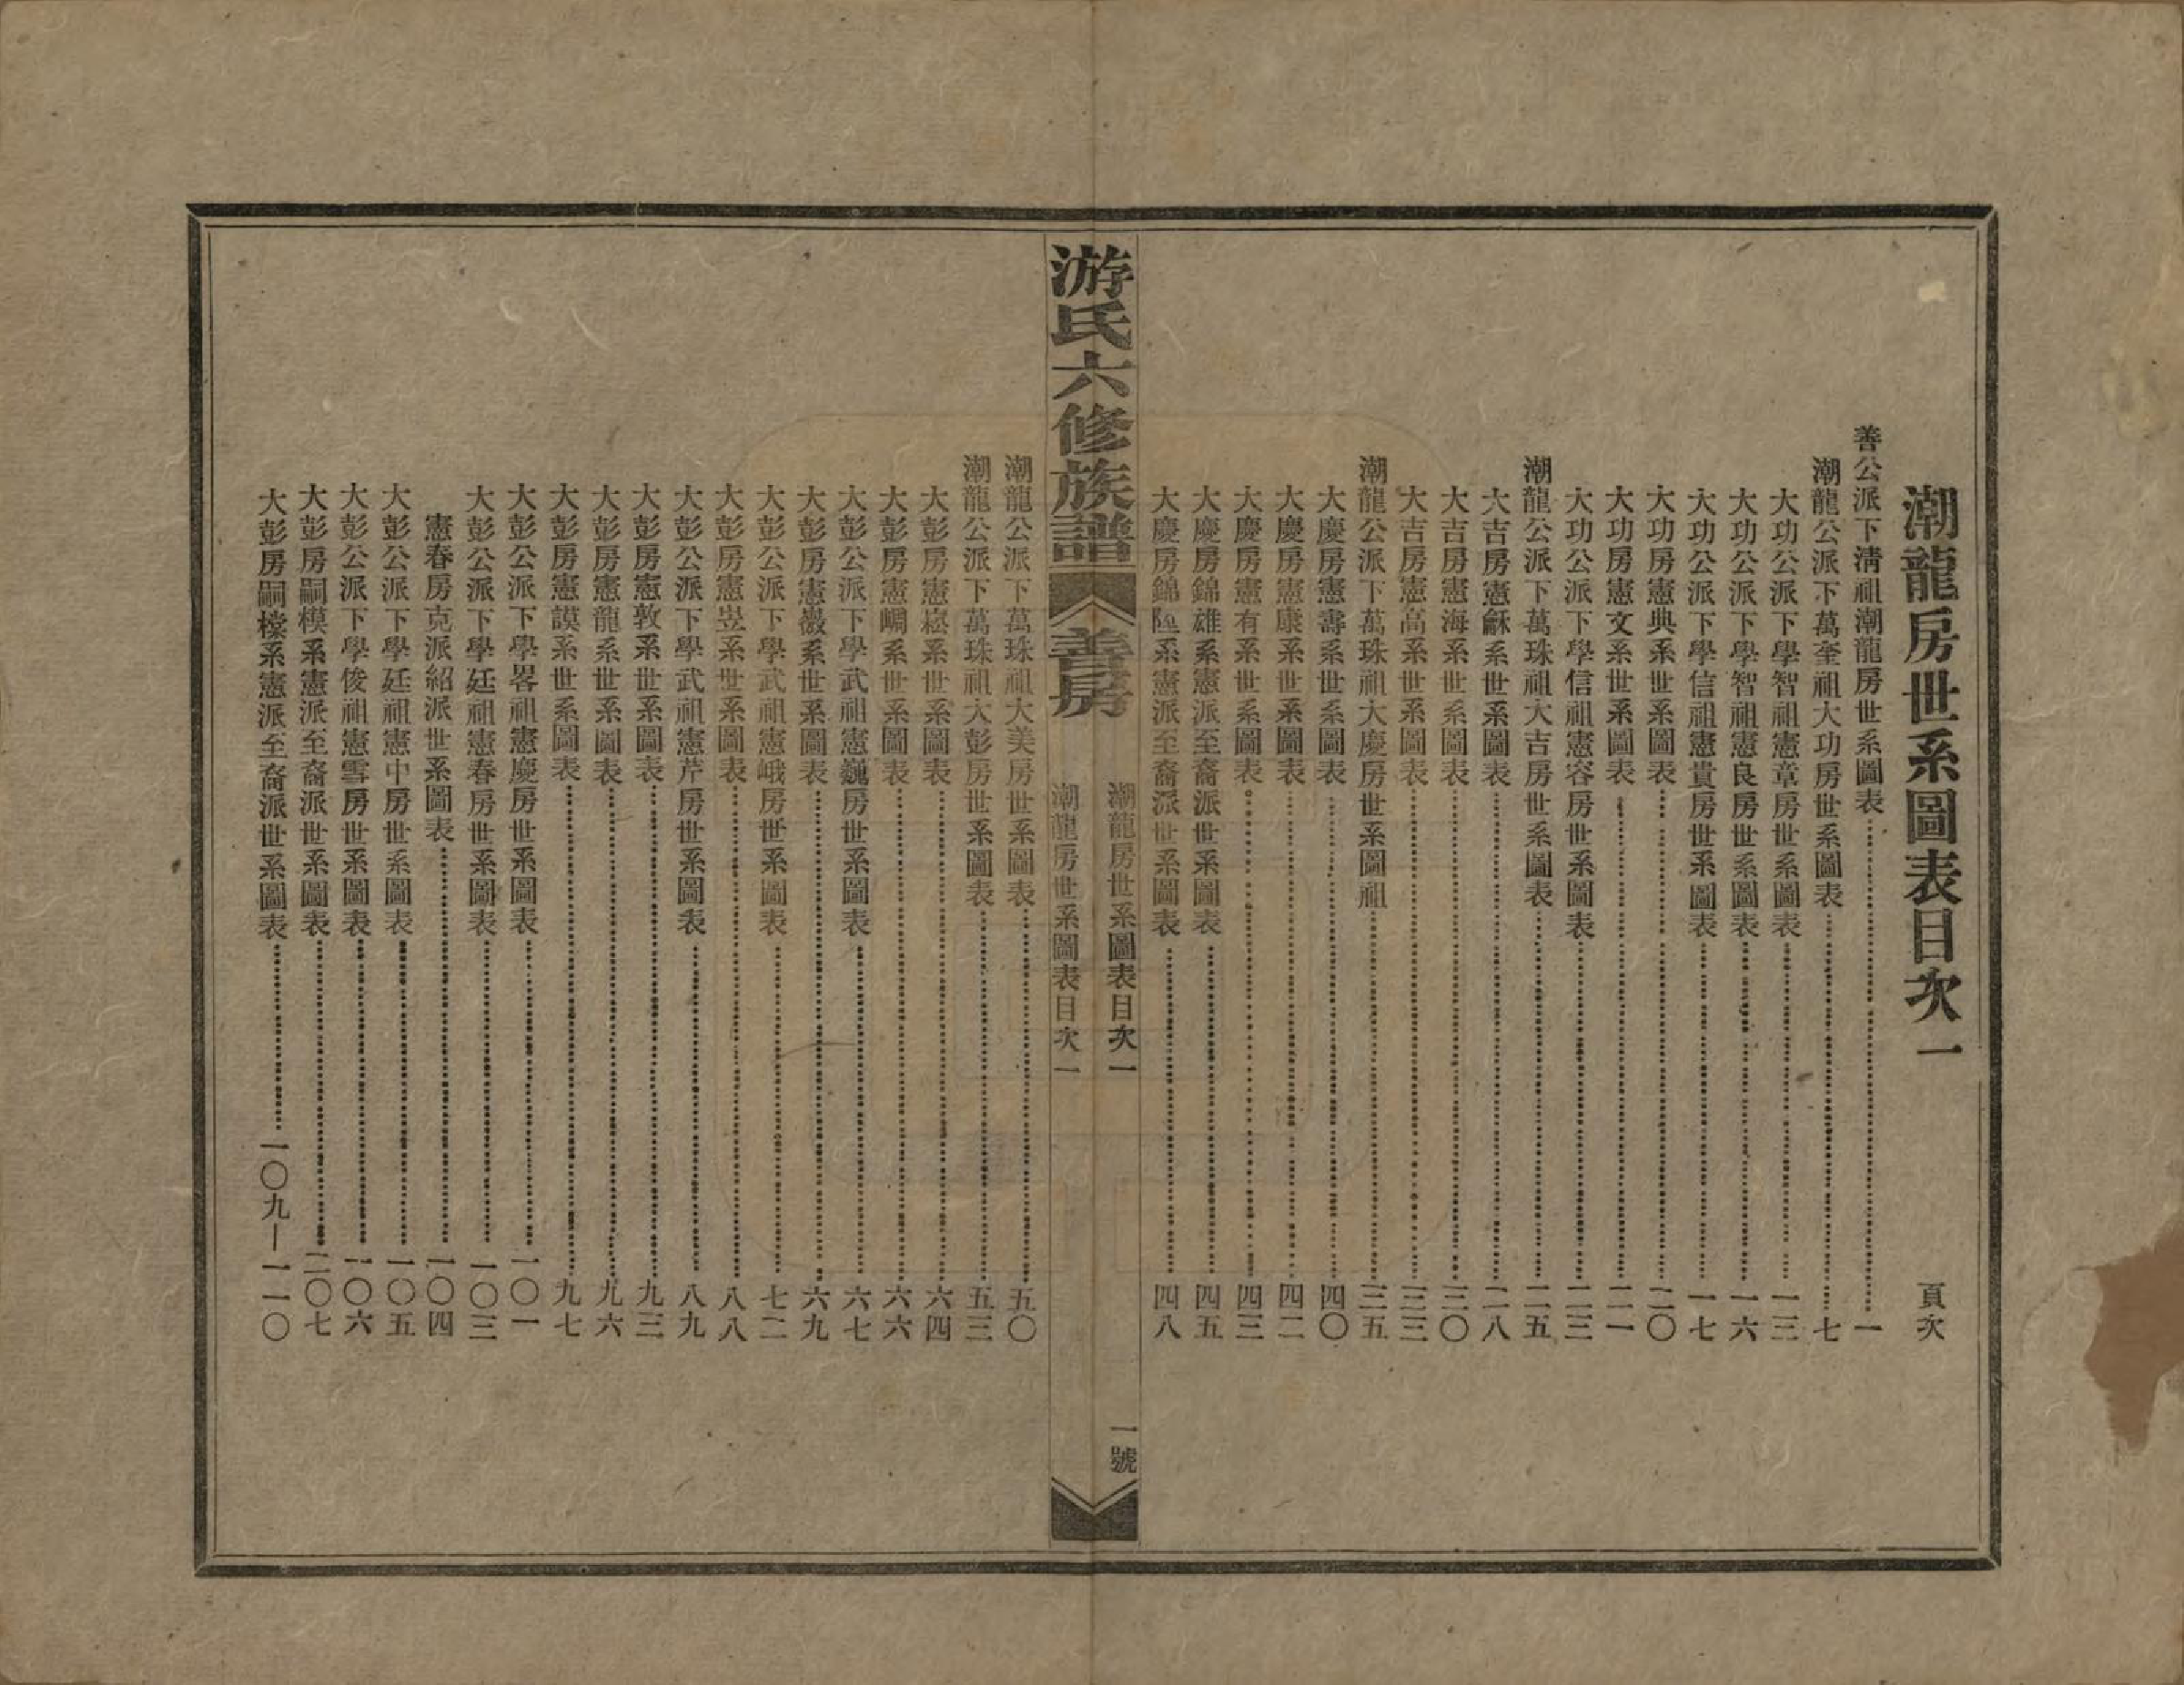 潮龍房世系圖表目次一
頁次
善公派下清祖潮龍房世系圖表……一
潮龍公派下萬奎祖大功房世系圖表……七
大功公派下學智祖憲章房世系圖表……一三
大功公派下學智祖憲良房世系圖表……一六
大功公派下學信祖憲貴房世系圖表……一七
大功房憲典系世系圖表……二〇
大功房憲文系世系圖表……二一
大功公派下學信祖憲容房世系圖表……二三
潮龍公派下萬珠祖大吉房世系圖表……二五
大吉房憲龢系世系圖表……二八
大吉房憲海系世系圖表……三〇
大吉房憲高系世系圖表……三三
潮龍公派下萬珠祖大慶房世系圖祖……三五
大慶房憲壽系世系圖表……四〇
大慶房憲康系世系圖表……四二
大慶房憲有系世系圖表……四三
大慶房錦雄系憲派至裔派世系圖表……四五
大慶房錦陞系憲派至裔派世系圖表……四八
游氏六修族譜
善房
潮龍房世系圖表目次一
一號
潮龍房世系圖表目次一
潮龍公派下萬珠祖大美房世系圖表……五〇
潮龍公派下萬珠祖大彭房世系圖表……五三
大彭房憲崧系世系圖表……六四
大彭房憲嵋系世系圖表……六六
大彭公派下學武祖憲巍房世系圖表……六七
大彭房憲嶶系世系圖表……六九
大彭公派下學武祖憲峨房世系圖表……七二
大彭房憲岦系世系圖表……八八
大彭公派下學武祖憲芹房世系圖表……八九
大彭房憲敦系世系圖表……九三
大彭房憲龍系世系圖表……九六
大彭房憲謨系世系圖表……九七
大彭公派下學畧祖憲慶房世系圖表……一〇一
大彭公派下學廷祖憲春房世系圖表……一〇三
憲春房克派紹派世系圖表……一〇四
大彭公派下學廷祖憲中房世系圖表……一〇五
大彭公派下學俊祖憲雪房世系圖表……一〇六
大彭房嗣模系憲派至裔派世系圖表……一〇七
大彭房嗣檪系憲派至裔派世系圖表……一〇九—一一〇